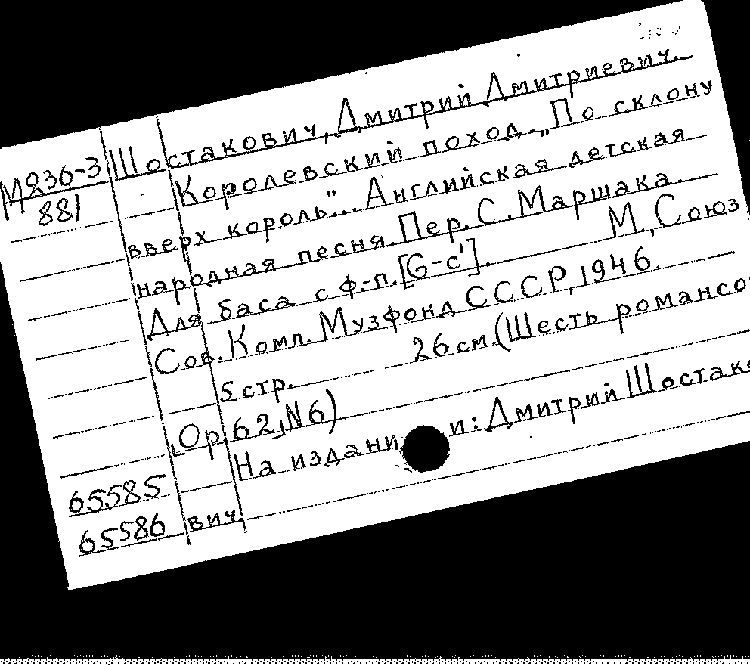 Шостакович, Дмитрий Дмитриевич.
М236-3 Королевский поход. „По склону
881
вверх король"... Английская детская
народная песня. Пер. С. Маршака.
Для баса с ф-п. [G-c']. М., Союз
Сов. Комп. Музфонд СССР, 1946.
5 стр. 26 см. (Шесть романсо
Op. 62, N6)
На издани и: Дмитрий Шостак
65585
65586 вич.